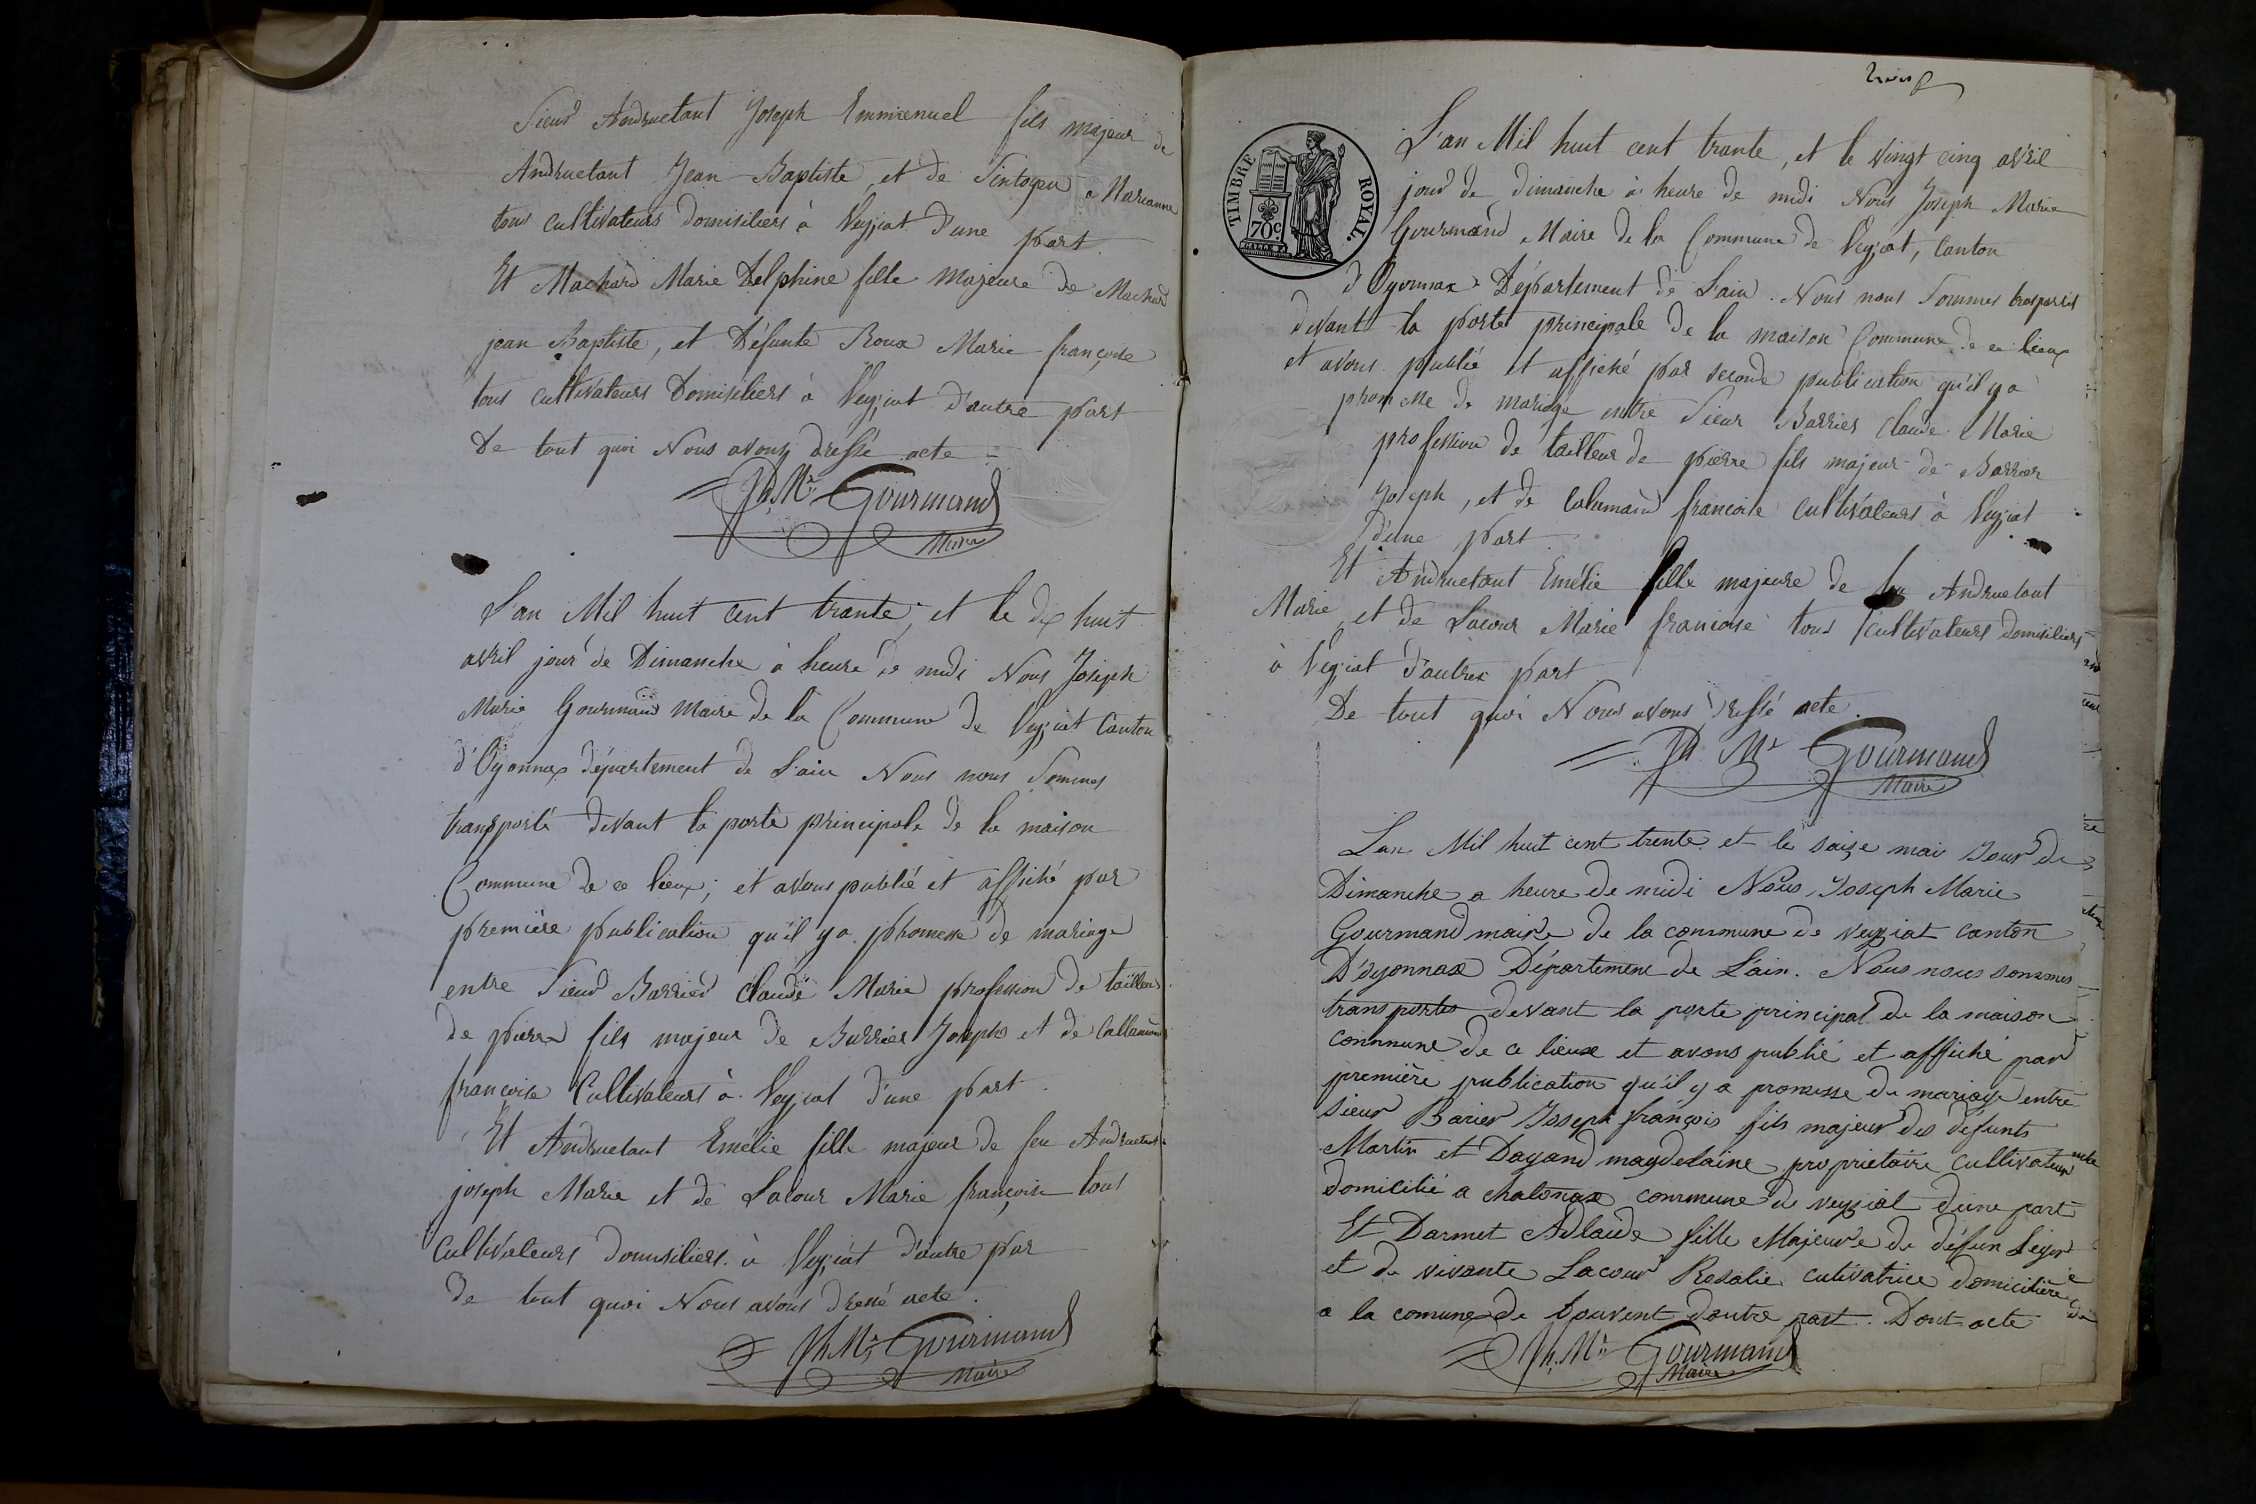 Sieur Andruetant Joseph Emmienuel fils majeur de
Andruetant Jean Baptiste, et de Tintoyeu Marianne
tous cultivateurs domisiliers à Veyziat d'une part
Et Machard Marie Delphine fille majeure de Machard
jean Baptiste, et Défunte Roux Marie françoise
tous cultivateurs Domisiliers à Veyziat d'autre part
De tout quoi Nous avons dressé acte
Jh. Mie Gourmand
Maire
L'an Mil huit cent trante, et le dix huit
avril jour de Dimanche à heure de midi Nous Joseph
Marie Gourmand Maire de la Commune de Veyziat Canton
d'Oyonnax département de L'ain Nous nous Sommes
transporté devant la porte principale de la maison
Commune de ce lieux; et avons publié et affiché par
première publication qu'il y a promesse de mariage
entre Sieur Barrier claude Marie profession de tailleur
de pierre fils majeur de Barrier Joseph et de Callamand
françoise Cultivateurs à Veyziat d'une part.
Et Andruetant Emélie fille majeur de feu Andruetant
joseph Marie et de Lacour Marie françoise tous
Cultivateurs Domisiliers à Veyziat d'autre par
De tout quoi Nous avons dressé acte.
Jh. Mie Gourmand
Maire
TIMBRE ROYAL.
70c.
L'an Mil huit cent trante, et le vingt cinq avril
jour de dimanche à heure de midi Nous Joseph Marie
Gourmand Maire de la Commune de Veyziat, Canton
d'Oyonnax Département de L'ain. Nous nous Sommes trasportés
devant la porte principale de la maison Commune de ce lieux
et avons publié et affiché par seconde publication qu'il y a
promesse de mariage entre Sieur Barrier Claude Marie
profession de tailleur de pierre fils majeur de Barrier
Joseph, et de Calamand francoise cultivateurs à Veyziat
d'une part.
Et Andruetant Emélie fille majeure de feu Andruetant
Marie et de Lacour Marie francoise tous cultivateurs domisiliers
à Veyziat d'autres part
De tout quoi Nous avons dressé acte.
Jh Mie Gourmand
Maire
L'an Mil huit cent trente et le saize mai Jour de
Dimanche a heure de midi Nous Joseph Marie
Gourmand maire de la commune de veyziat canton
D'oyonnax Département de L'ain. Nous nous sommes
transportes devant la porte principal de la maison
commune de ce lieux et avons publié et affiché par
première publication qu'il y a promesse de mariage entre
sieur Barier Joseph françois fils majeur des défunts
Martin et Dagand magdelaine proprietaire cultivateur
domicilié a chatonax commune de veyziat dune part
Et Darmet Adlaide fille Majeure de défun Leger
et de vivante Lacour Rosalie cutivatrice domicilière
a la comune de Douvent dautre part. Dont acte
Jh. Mie Gourmand
Maire